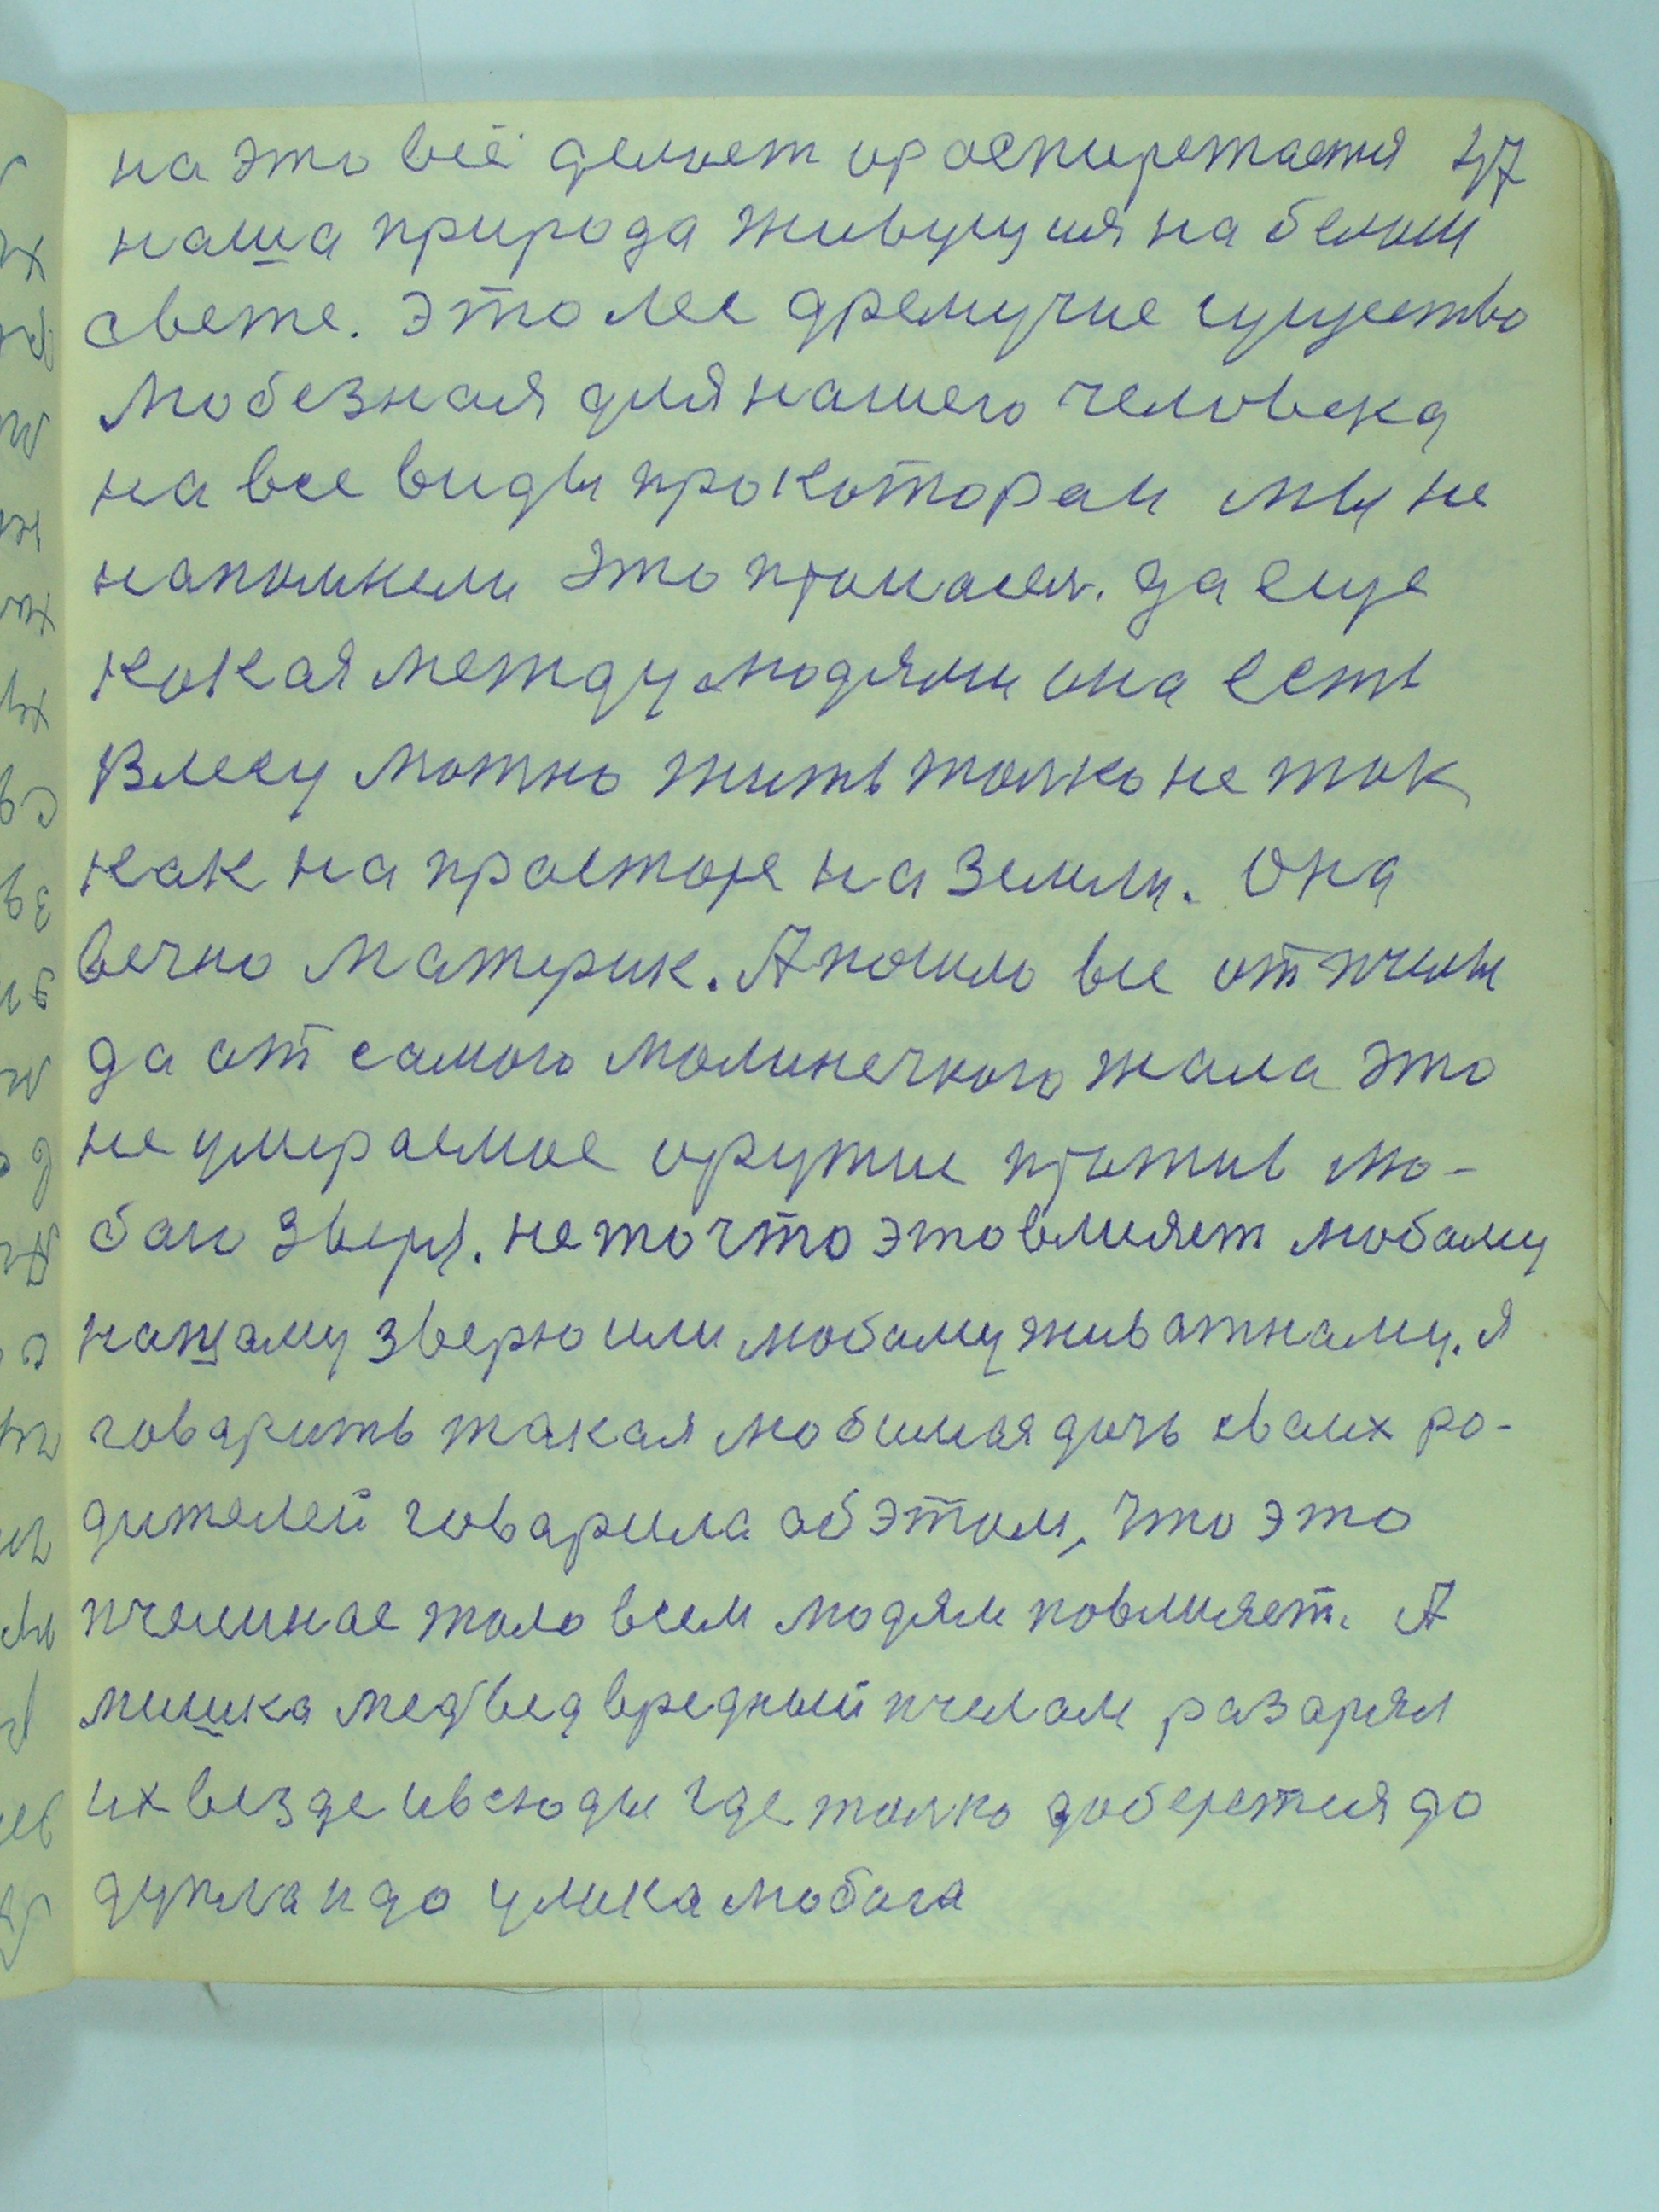 на это всё делает 47
наша природа живущия на белом
свете. это лес дремучие существо
любезная для нашего человека
на все виды прокотораи мы не
напомнели это промасел. да еще
кокая между людями она есть
Влесу можно жить только не так
как на просторе на земли. Она
вечно материк. А пошло все от пчелы
да от самого малинечкого жала это
не умираемое оружие против лю-
баго зверя. не то что это влияет любому
нашаму зверю или любому животнаму. я
говарить такая любимая дочь сваих ро-
дителей говарила об этом, что это
пчелинае жало всем людям повлияет. А
мишка медведь вредный пчелам разарял
их везде ивсюды где только доберется до
дупла и до улика любога